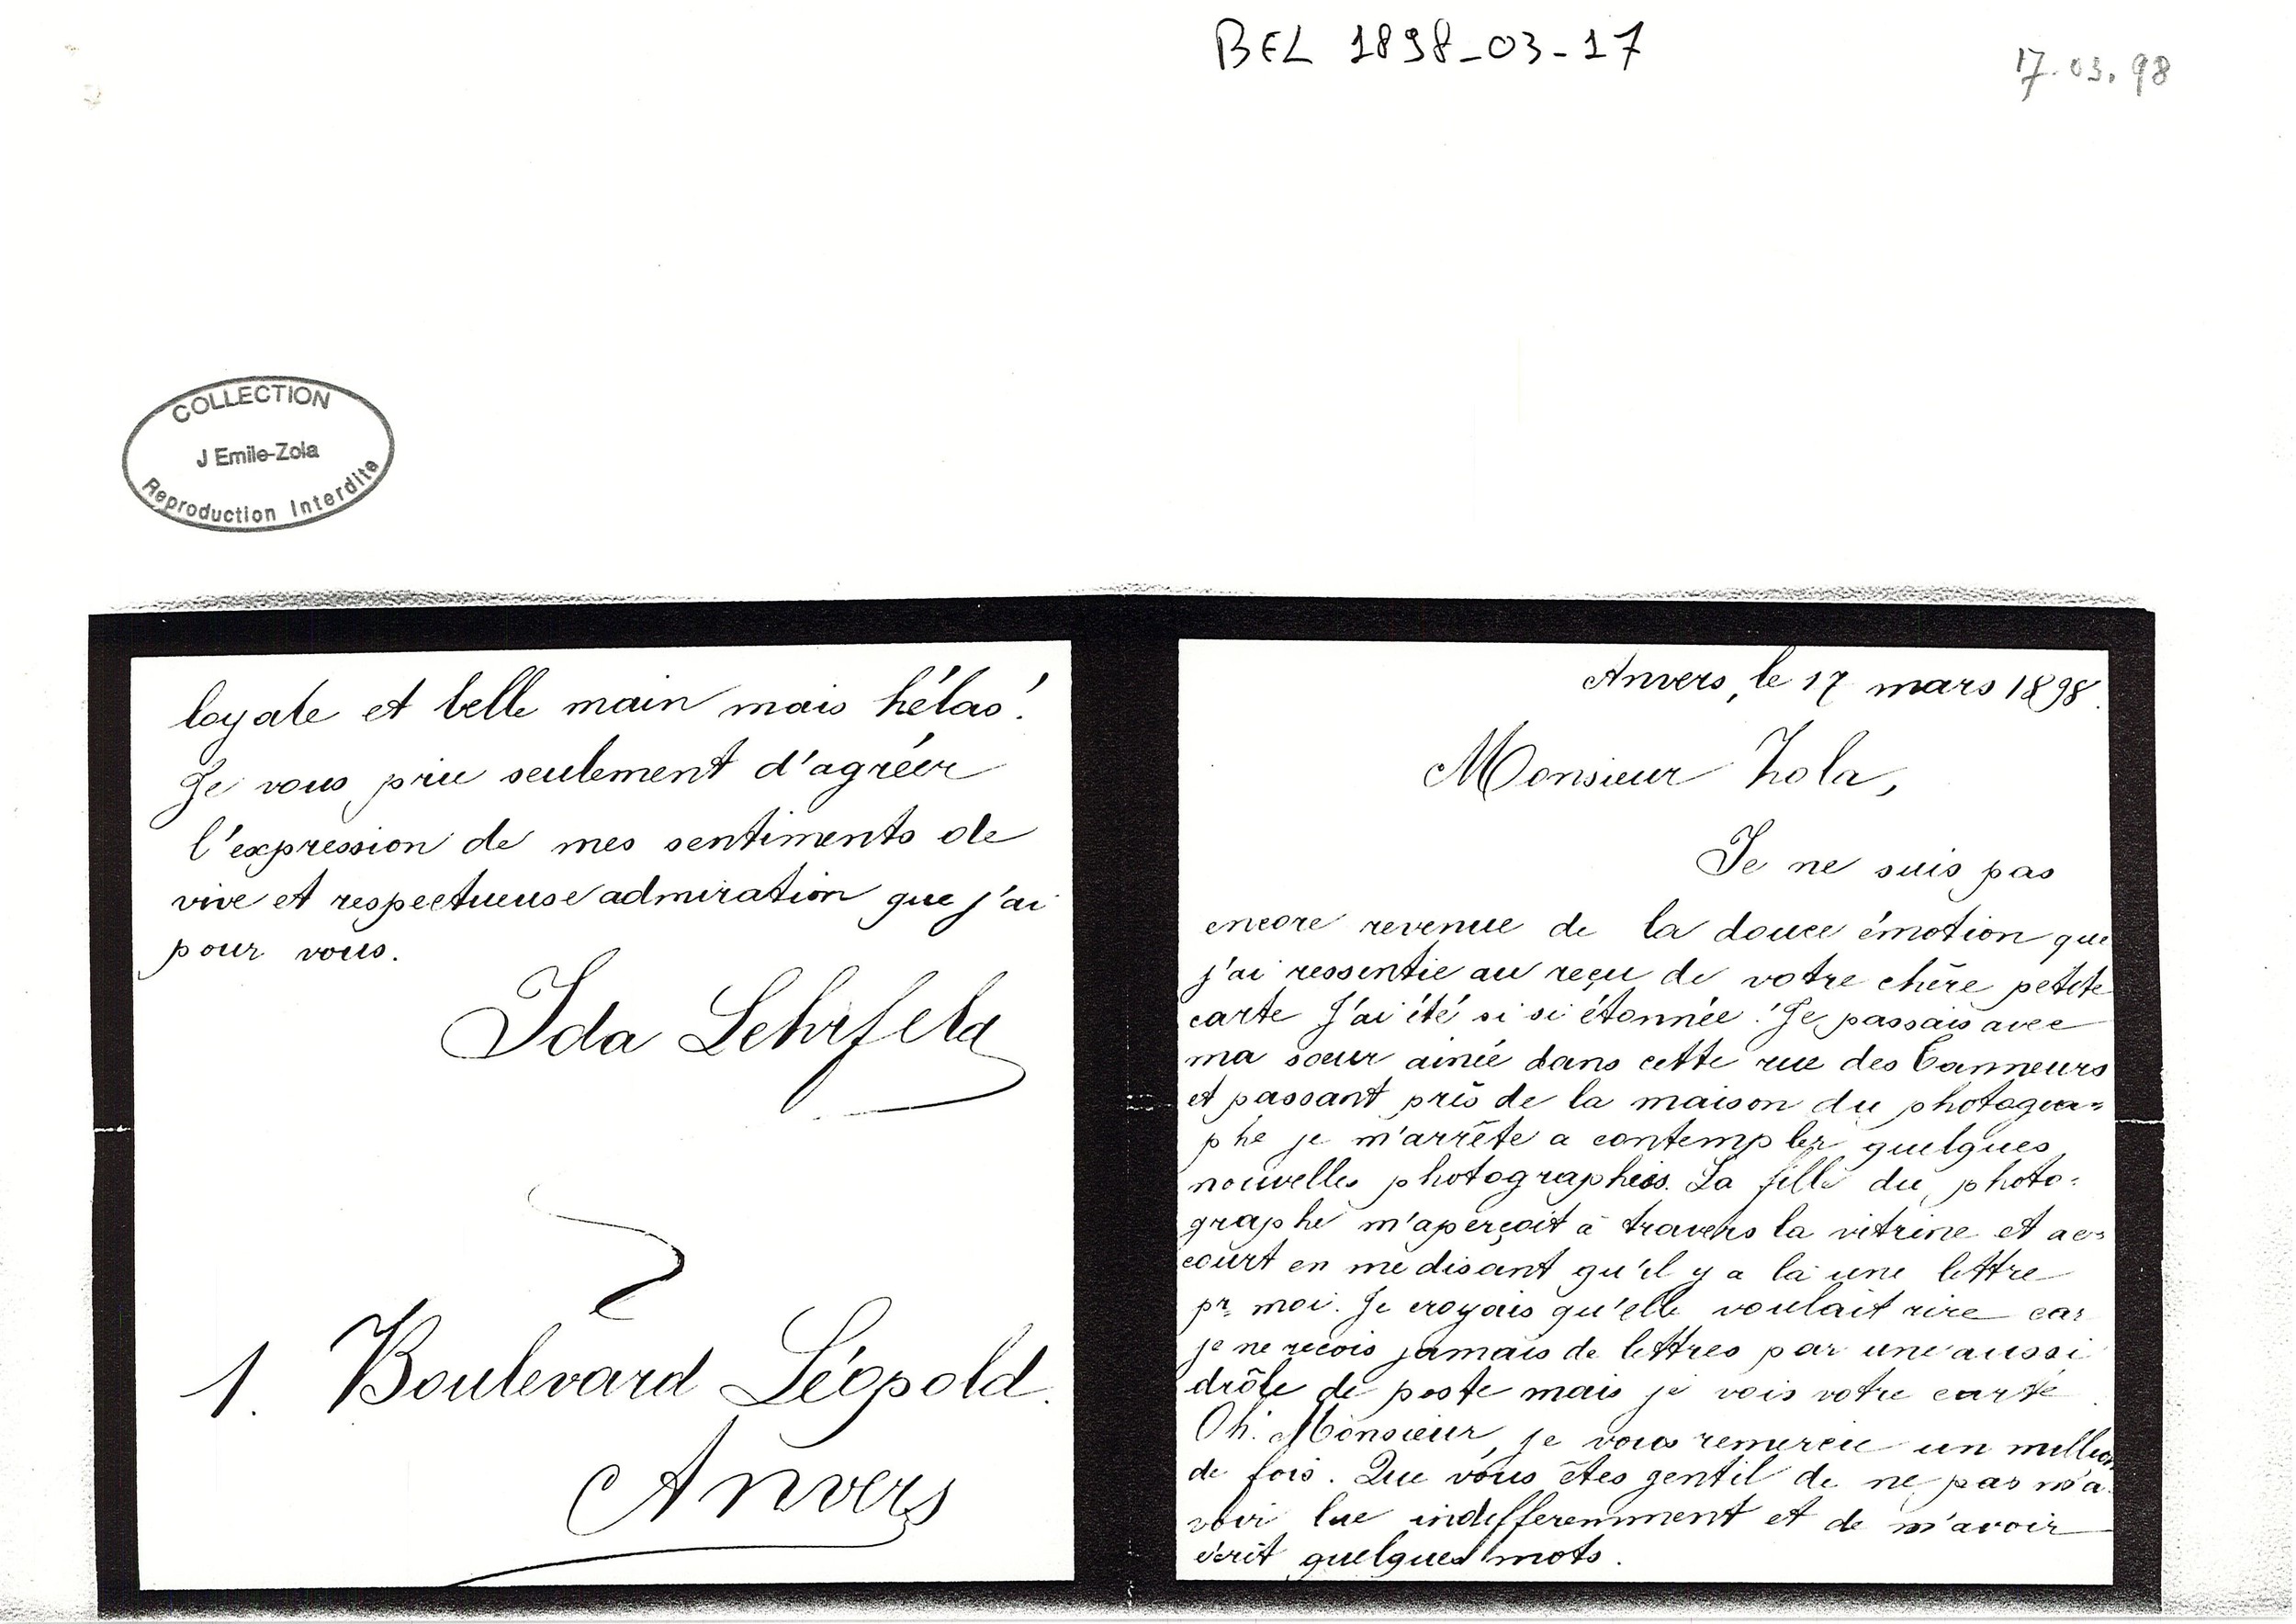 BEL 1898-03-17
17.03.98
COLLECTION
J Emile-Zola
Reproduction Interdite
loyale et belle main mais hélas!
Je vous prie seulement d'agréer
l'expression de mes sentiments de
vive et respectueuse admiration que j'ai
pour vous.
Ida Lehrfeld
1. Boulevard Léopold.
Anvers
Anvers, le 17 mars 1898.
Monsieur Zola,
Je ne suis pas
encore revenue de la douce émotion que
j'ai ressentie au reçu de votre chère petite
carte J'ai été si si étonnée! Je passais avec
ma soeur ainée dans cette rue des Tanneurs
et passant près de la maison du photogra=
phe je m'arrête a contempler quelques
nouvelles photographies. La fille du photo=
graphe m'aperçoit à travers la vitrine et ac=
court en me disant qu'il y a là une lettre
pr moi. Je croyais qu'elle voulait rire car
je ne recois jamais de lettres par une aussi
drôle de poste mais je vois votre carte.
Oh! Monsieur, je vous remercie un million
de fois. Que vous êtes gentil de ne pas m'a
voir lue indifferemment et de m'avoir
écrit quelques mots.